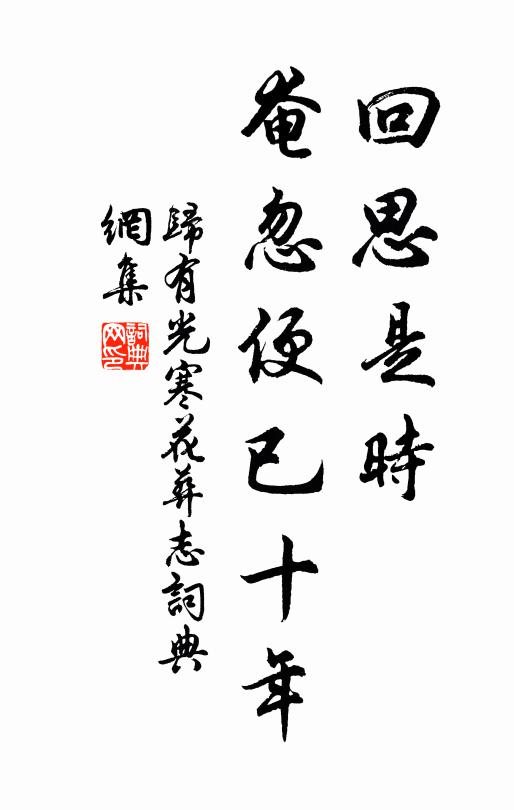 回思是時
奄忽便已十年
歸有光寒花葬志詞典
網集
詞典
网印